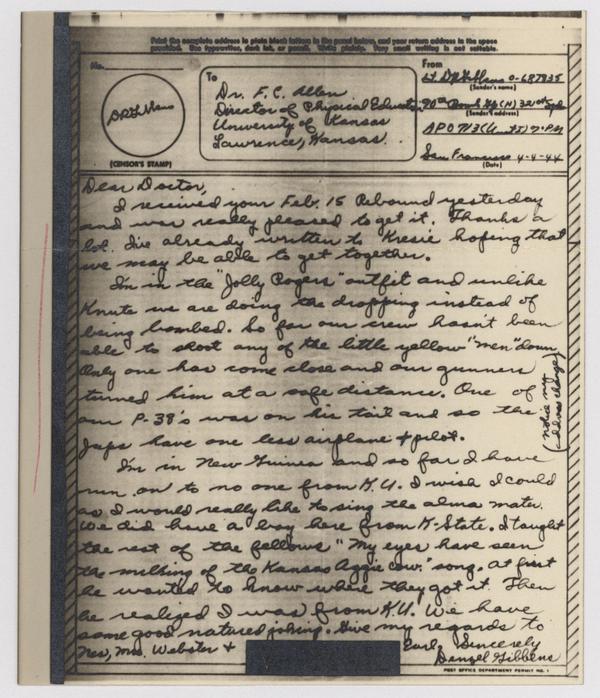 Print the complete address in plain block letters in the panel below, and your return address in the space
provided. Use typewriter, dark ink, or pencil. Write plainly. Very small writing is not suitable.
No.
(CENSOR'S STAMP)
To
Dr. F. C. Allen
Director of Physical Education
University of Kansas
Lawrence, Kansas
From
Lt. D. R. Gibbens O-687835
(Sender's name)
90th Bomb Gp (H) 321st Sqd
(Sender's address)
APO 713 (Unit 5) % P.M
San Francisco 4-4-44
(Date)
Dear Doctor,
I received your Feb. 15 Rebound yesterday
and was really pleased to get it. Thanks a
lot. I've already written to Kresie hoping that
we may be able to get together.
I'm in the "Jolly Rogers" outfit and unlike
Knute we are doing the dropping instead of
being bombed. So far our crew hasn't been
able to shoot any of the little yellow "men" down
Only one has come close and our gunners
turned him at a safe distance. One of
our P-38's was on his tail and so the
Japs have one less airplane & pilot.
(notice my
address change)
I'm in New Guinea and so far I have
run on to no one from K.U. I wish I could
as I would really like to sing the alma mater.
We did have a boy here from K-State. I taught
the rest of the fellows "My eyes have seen
the milking of the Kansas Aggie cow." song. At first
he wanted to know where they got it. Then
he realized I was from K.U. We have
some good natured joking. Give my regards to
Ness, Mrs. Webster & Earl. Sincerely
Denzel Gibbens
POST OFFICE DEPARTMENT PERMIT NO. 1